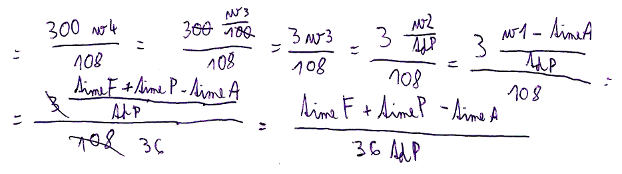 = 300 w4 / 108 = 300 w3/100 / 108 = 3 w3 / 108 = 3 w2/AdP / 108 = 3 w1 - SimeA / AdP / 108 =
= 3 SimeF + SimeP - SimeA / AdP / 108 36 = SimeF + SimeP - SimeA / 36 AdP